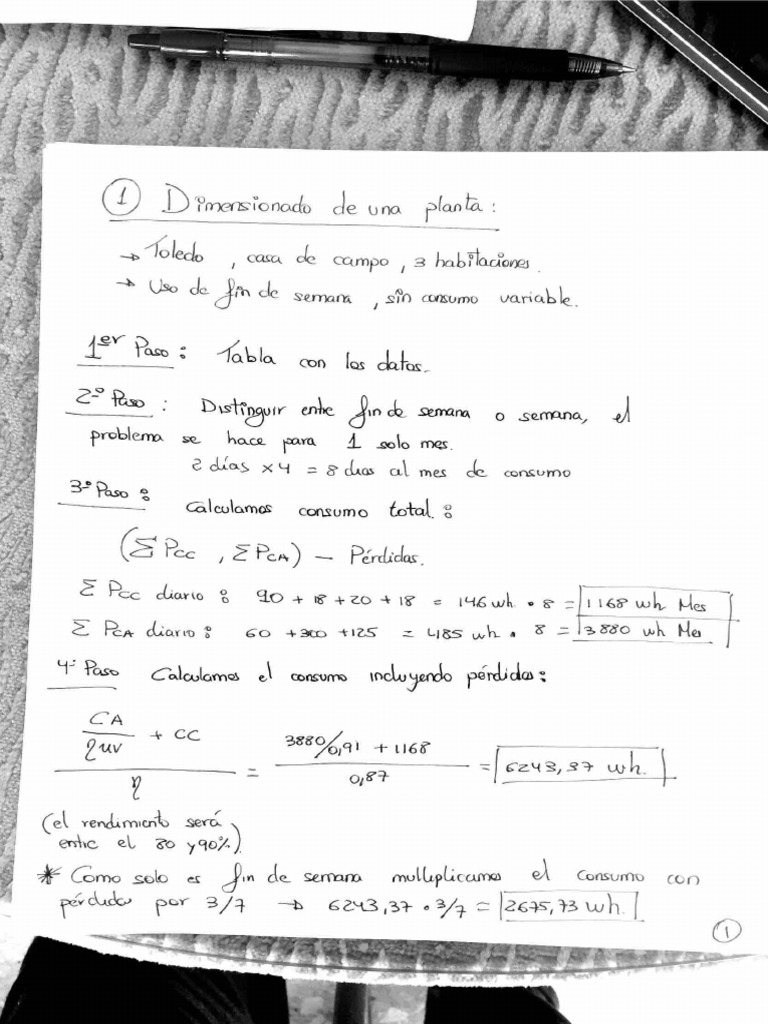 ① Dimensionado de una planta:
→ Toledo, casa de campo, 3 habitaciones.
→ Uso de fin de semana, sin consumo variable.
1er Paso: Tabla con los datos.
2º Paso: Distinguir entre fin de semana o semana, el
problema se hace para 1 solo mes.
2 días x 4 = 8 dias al mes de consumo
3º Paso: Calculamos consumo total:
(Σ Pcc, Σ PCA) - Pérdidas.
Σ Pcc diario: 90 + 18 + 20 + 18 = 146 wh · 8 = 1168 wh Mes
Σ PCA diario: 60 + 300 + 125 = 485 wh · 8 = 3880 wh Mes
4º Paso Calculamos el consumo incluyendo pérdidas:
CA/ηuv + CC
3880/0,91 + 1168
η = 0,87 = 6243,37 wh.
(el rendimiento será
entre el 80 y 90%)
* Como solo es fin de semana multiplicamos el consumo con
pérdidas por 3/7 → 6243,37 · 3/7 = 2675,73 wh.
①